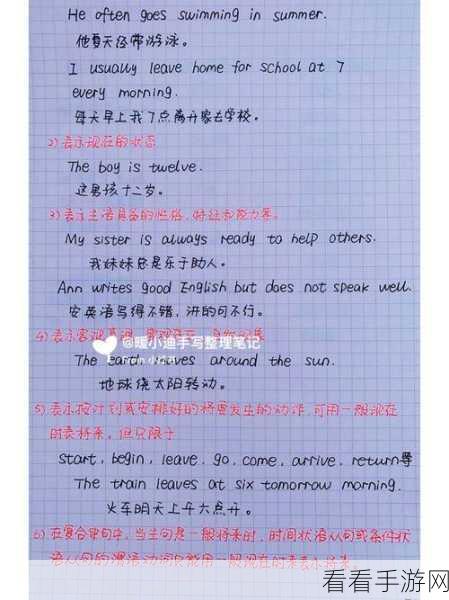 He often goes swimming in summer.
他夏天经常游泳。
I usually leave home for school at 7
every morning.
每天早上我7点离开家去学校。
2) 表示现在的状态
The boy is twelve.
这男孩十二岁。
3) 表示主语具备的性格、特征和能力等。
My sister is always ready to help others.
我妹妹总是乐于助人。
Ann writes good English but does not speak well.
安英语写得不错,讲的可不行。
4) 表示客观真理
@暖小迪手写整理笔记
The earth moves around the sun.
地球绕太阳转动。
5) 表示按计划或安排好的将要发生的动作,可用一般现在
时表将来,但只限于
start, begin, leave, go, come, arrive, return等
The train leaves at six tomorrow morning.
火车明天上午六点开。
6) 在复合句中,当主句是一般将来时,时间状语从句或条件状
语从句的谓语动词只能用一般现在时来表示将来。
看看手游网
www.kkx.net